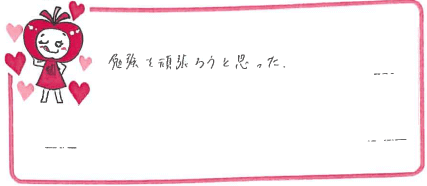 勉強を頑張ろうと思った.